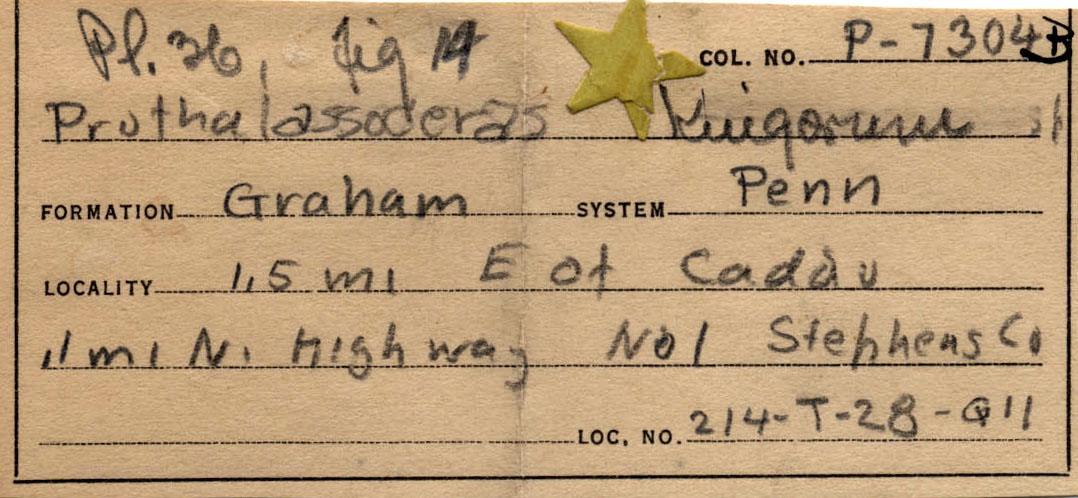 Pl. 36, fig 14 COL. NO. P-7304
Prothalassoceras Kingorum
FORMATION Graham SYSTEM Penn
LOCALITY 1.5 mi E of Caddo
.1 mi N. Highway No 1 Stephens Co
LOC. NO. 214-T-28-Q11